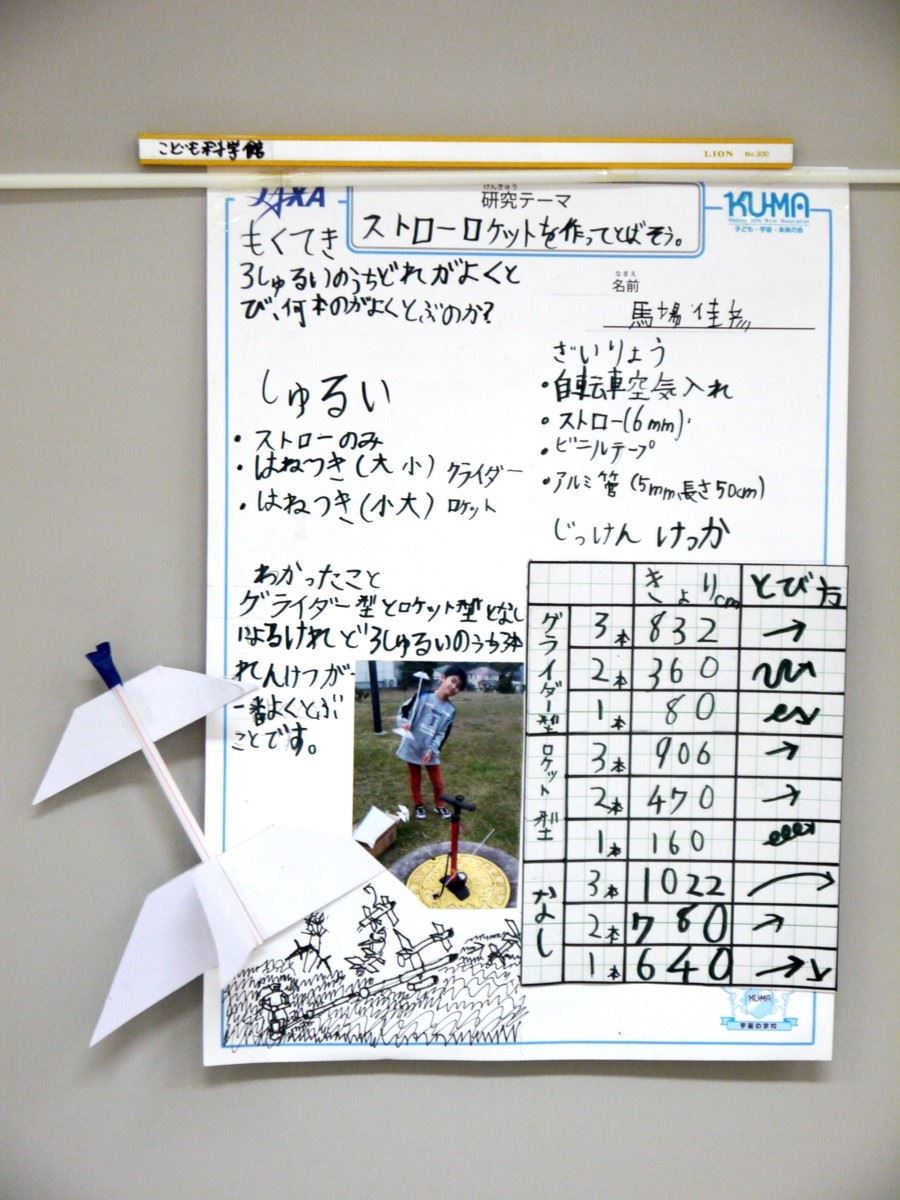 こども科学館
LION No.300
JAXA
けんきゅう
研究テーマ
ストローロケットを作ってとばそう。
KU-MA
子ども・宇宙・未来の会
もくてき
3しゅるいのうちどれがよくと
び、何本のがよくとぶのか?
なまえ
名前
馬場佳
しゅるい
・ストローのみ
・はねつき(大小)グライダー
・はねつき(小大)ロケット
ざいりょう
・自転車空気入れ
・ストロー(6mm)
・ビニルテープ
・アルミ管(5mm長さ50cm)
じっけんけっか
わかったこと
グライダー型とロケット型となし
によるけれど3しゅるいのうち3本
れんけつが
一番よくとぶ
ことです。
きょりcm とび方
グライダー型 3本 832
2本 360
1本 80
ロケット型 3本 906
2本 470
1本 160
なし 3本 1022
2本 780
1本 640
KU-MA
宇宙の学校